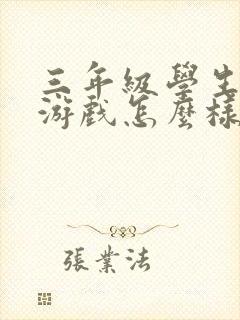 三年級學生
游戲怎麼樣
張業法